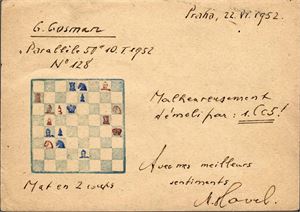 Praha, 22. VI. 1952.
G. Gusman
"Parallèle 50" 10. I 1952
N° 128
Malheureusement
démoli par: 1. Cc5!
Avec mes meilleurs
sentiments
Mat en 2 coups
M. Havel